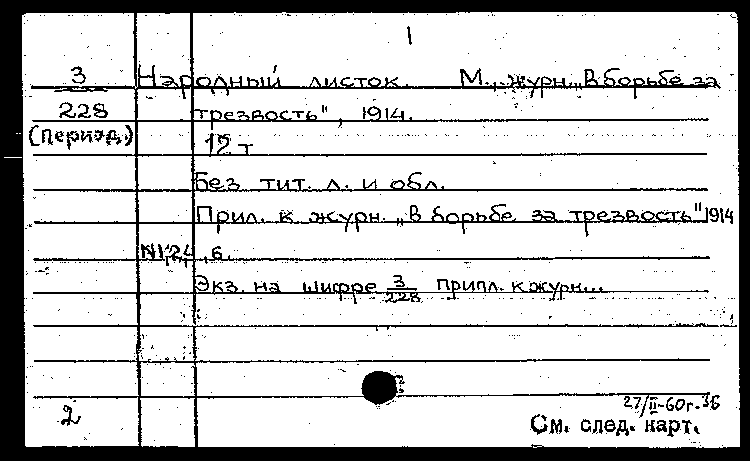 1
3 Народный листок. М., журн. „В борьбе за
228 трезвость", 1914.
(Период.) 12 т
Без тит. л. и обл.
Прил. к журн. „В борьбе за трезвость" 1914
N1,2,4,6.
Экз. на шифре 3/228 припл. к журн...
27/II-60г.
2 См. след. карт.